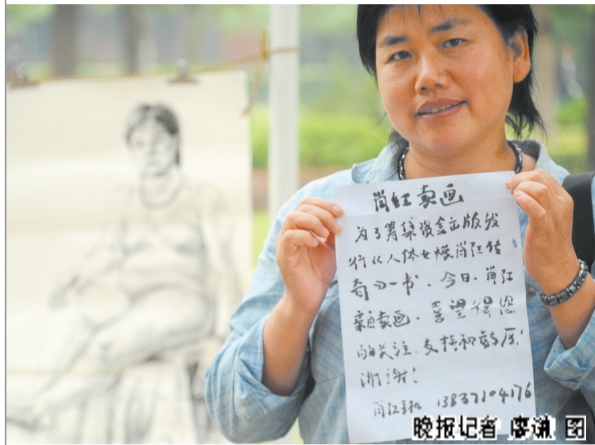 肖红卖画
为了筹集资金出版发
行《人体女模肖红传
奇》一书,今日,肖红
亲自卖画,望得您
的关注、支持和鼓厉!
谢谢!
肖红手机 13837104176
晚报记者 廖谦 图